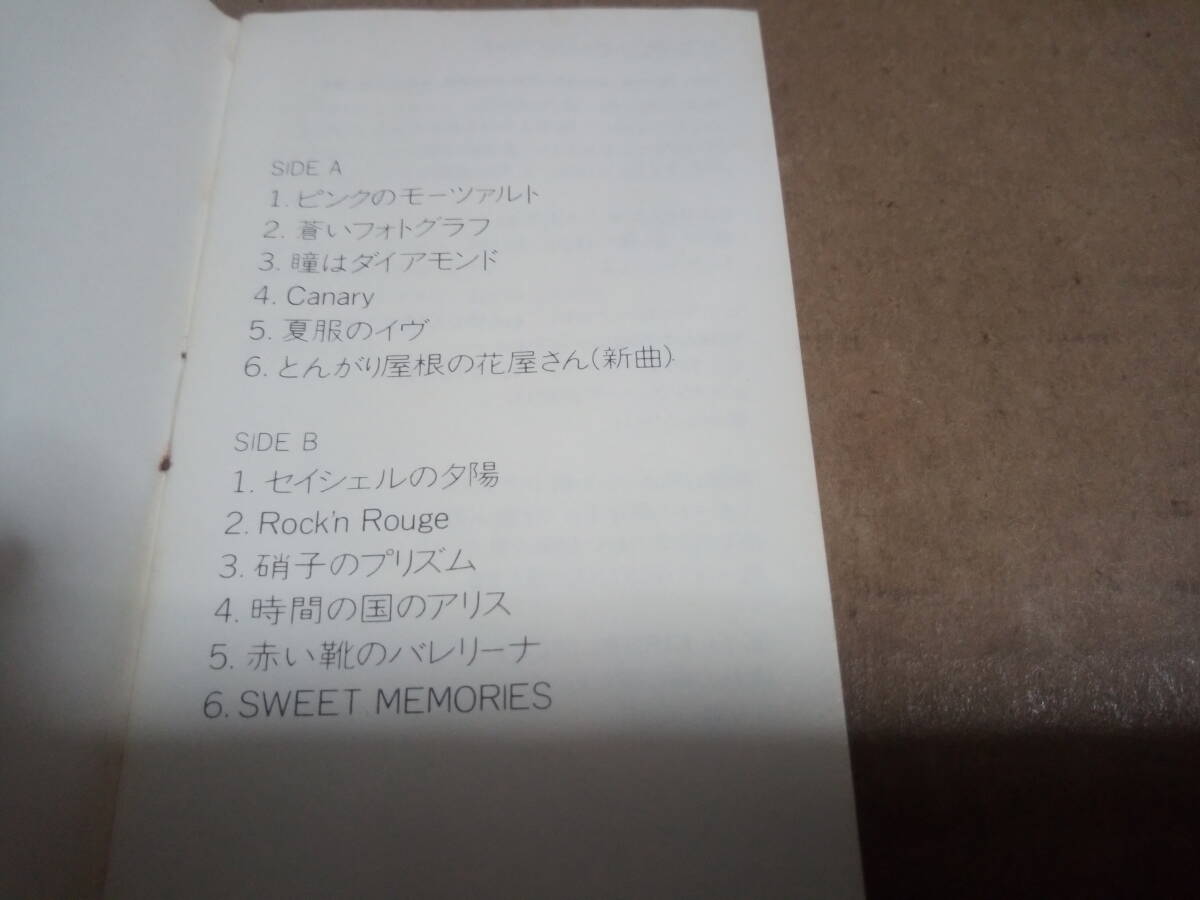 SIDE A
1. ピンクのモーツァルト
2. 蒼いフォトグラフ
3. 瞳はダイアモンド
4. Canary
5. 夏服のイヴ
6. とんがり屋根の花屋さん(新曲)
SIDE B
1. セイシェルの夕陽
2. Rock'n Rouge
3. 硝子のプリズム
4. 時間の国のアリス
5. 赤い靴のバレリーナ
6. SWEET MEMORIES